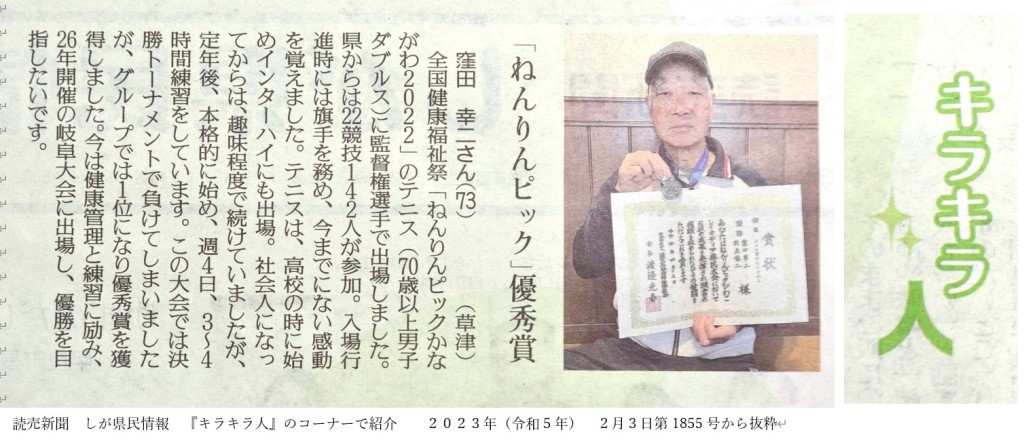 キラキラ人
「ねんりんピック」優秀賞
窪田　幸二さん(73)　　(草津)
全国健康福祉祭「ねんりんピックかな
がわ２０２２」のテニス（70歳以上男子
ダブルス）に監督権選手で出場しました。
県からは22競技１４２人が参加。入場行
進時には旗手を務め、今までにない感動
を覚えました。テニスは、高校の時に始
めインターハイにも出場。社会人になっ
てからは、趣味程度で続けていましたが、
定年後、本格的に始め、週４日、３〜４
時間練習をしています。この大会では決
勝トーナメントで負けてしまいました
が、グループでは1位になり優秀賞を獲
得しました。今は健康管理と練習に励み、
26年開催の岐阜大会に出場し、優勝を目
指したいです。
賞状
様
読売新聞　しが県民情報　『キラキラ人』のコーナーで紹介　　２０２３年（令和５年）　２月３日第 1855 号から抜粋